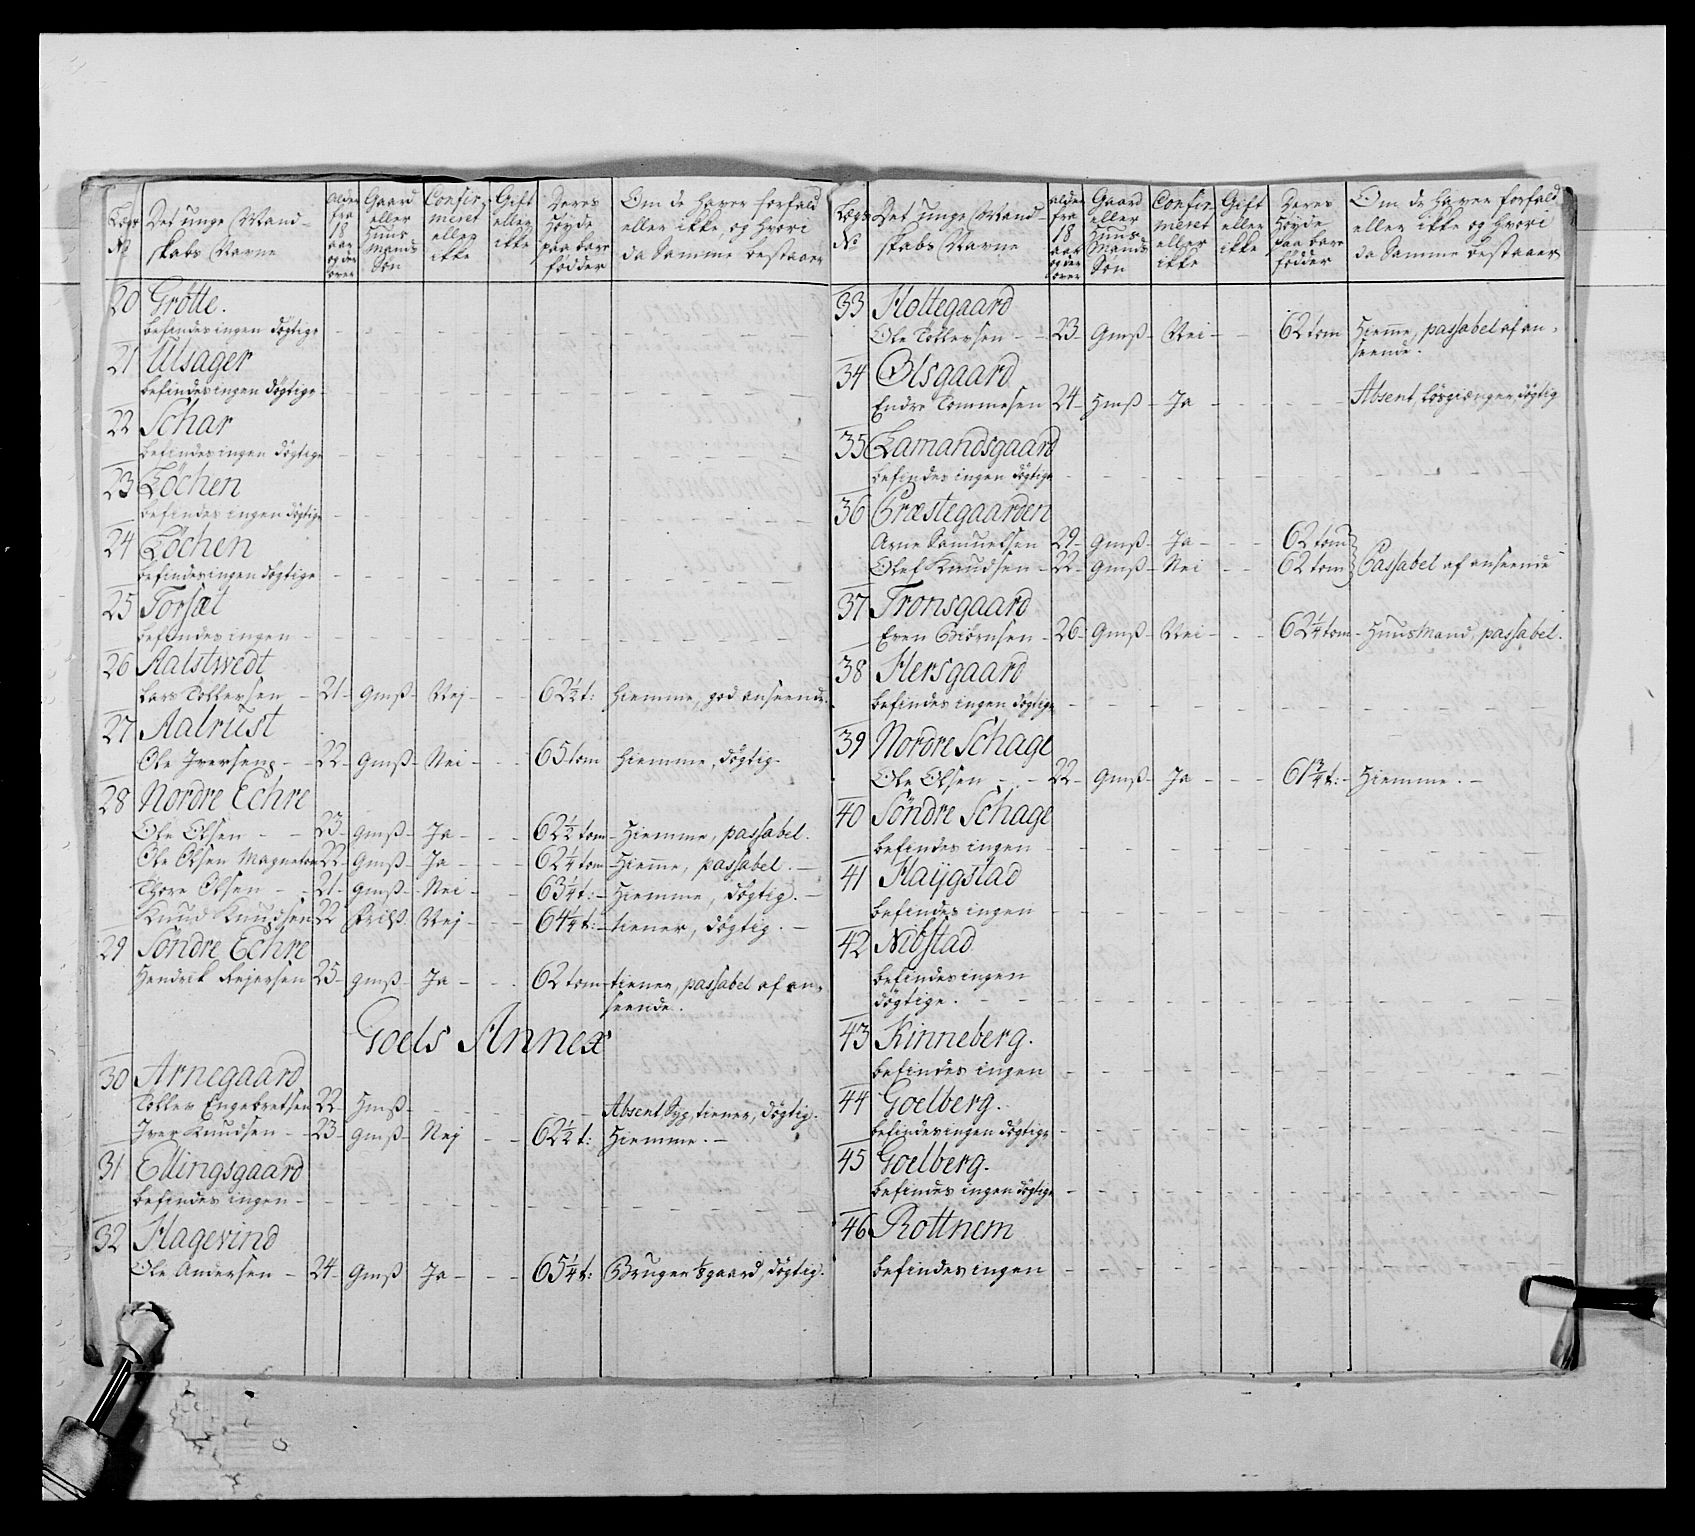 Lægs No | Det unge Mandskabs Navne | alder fra 18 aar og der over | Gaard eller Huus Mands Søn | Confirmeret eller ikke | Gift eller ikke | Deres Høyde paa bare fødder | Om de haver forfald eller ikke, og hvori da Samme bestaaer
20 Grøtte.
befindes ingen døgtige
21 Ulsager
befindes ingen døgtige
22 Schar
befindes ingen døgtige
23 Løchen
befindes ingen døgtige
24 Løchen
befindes ingen døgtige
25 Torsæt
befindes ingen
26 Aalstwedt
Lars Tollevsen - 21 - Gmß - Nej - - 62½ t: hiemme, god anseende.
27 Aalrust
Ole Iversen - 22 - Gmß - Nei - - 65 tom hiemme, døgtig.
28 Nordre Echre
Ole Olsen - - 23 - Gmß - Ja - - 62½ tom - Hiemme, passabel.
Ole Olsen Magneton 22 - Gmß - Ja - - 62¼ tom - Hiemme, passabel. -
Thore Olsen - - 21 - Gmß - Nei - - 63¼ t: - Hiemme, døgtig. -
Knud Knudsen 22 Nej - - 64¼ t: - tiener, døgtig. -
29 Søndre Echre
Hendrik Rejersen 25 - Gmß - Ja - - 62 tom - tiener, passabel af an-
seende.
Goels Annex
30 Arnegaard
Tollev Engebretsen 22 - Hmß - - - Absent tiener, døgtig.
Iver Knudsen - - 23 - Gmß - Nej - - 62½ t: Hiemme. -
31 Ellingsgaard
befindes ingen -
32 Hagevind
Ole Andersen - 24 - Gmß Ja - - 65¼ t: Bruger ⅛ gaard, døgtig.
Lægs No | Det Junge Mandskabs Navne | alder fra 18 aar og der over | Gaard eller Huus Mands Søn | Confirmeret eller ikke | Gift eller ikke | Deres Høyde paa bare fødder | Om de haver forfald eller ikke og hvori da Samme bestaaer
33 Holtegaard
Ole Tollevsen - - 23 - Gmß - Nei - - 62 tom Hiemme, passabel af an-
seende.
34 Olsgaard
Endre Tommesen 24 - Hmß - Ja - - - Absent, Løsgiænger, døgtig
35 Lamandsgaard
befindes ingen døgtige
36 Præstegaarden
Arne Samuelsen 29 - Gmß - Ja - - 62 tom
Olef Knudsen - 22 - Gmß - Nei - - 62 tom } Passabel af anseende
37 Tronsgaard
Even Biørnsen - 26 - Gmß - Nei - - 62¼ tom - Huusmand, passabel.
38 Hersgaard
befindes ingen døgtige
39 Nordre Schage
Ole Olsen - - 22 - Gmß - Ja - - 61¾ t: - Hiemme. -
40 Søndre Schage
befindes ingen
41 Haÿgstad
befindes ingen
42 Nibstad
befindes ingen
døgtige.
43 Kinneberg.
befindes ingen
44 Goelberg.
befindes ingen døgtige
45 Goelberg.
befindes ingen døgtige
46 Rottnem
befindes ingen